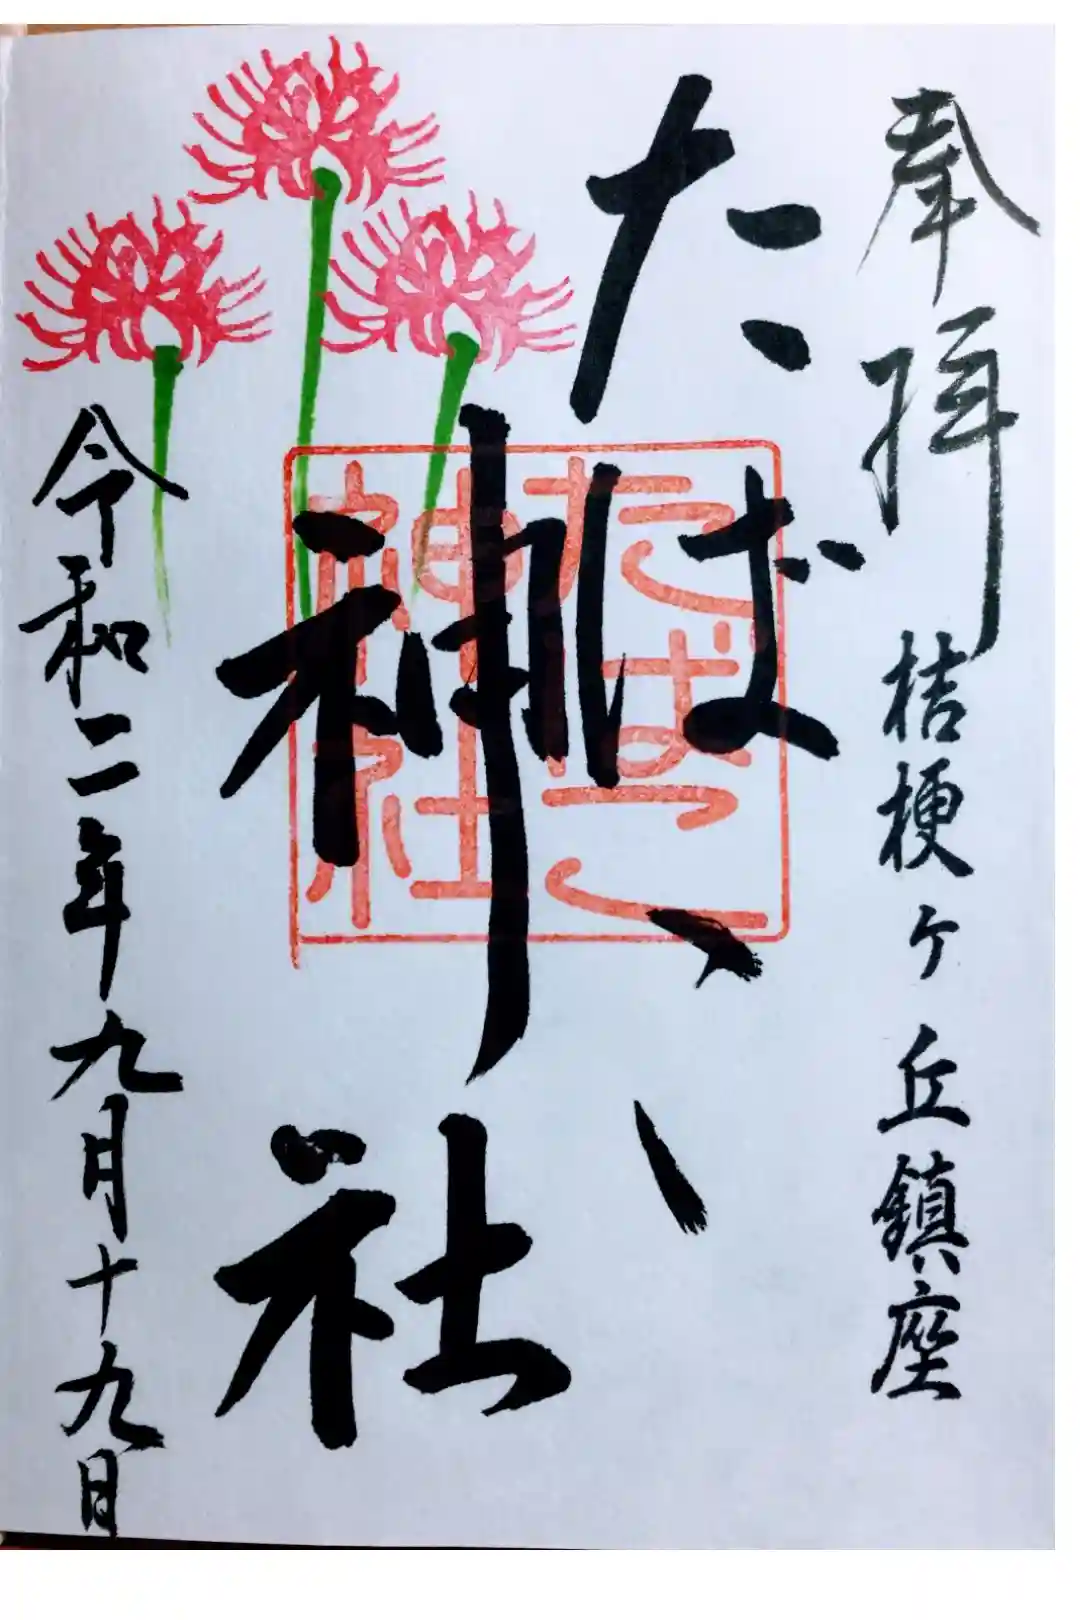 奉拝
桔梗ヶ丘鎮座
たばこ
神社
たばこ
神社
令和二年九月十九日